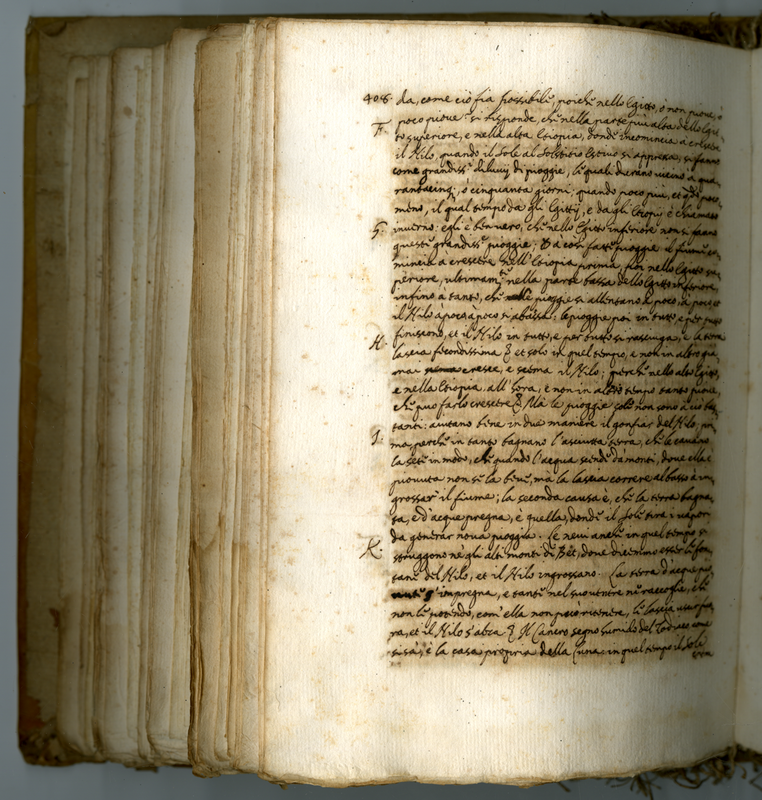 408. da, come ciò sia possibile, poiche nello Egitto, o non piove, ò
F. poco piove: si risponde, che nella parte più alta dello Egit-
to superiore, e nella alta Etiopia, donde incomincia a crescere
il Nilo, quando il Sole al Solstitio Estivo si appressa, si fanno
come grandiss.i diluvij di pioggie, le quali durano vicino à qua-
rantacinq;, ò cinquanta giorni, quando poco più, et q.do poco
meno, il qual tempo da gli Egittij, e dagli Etiopij è chiamato
G. inverno: egli è ben vero, che nello Egitto inferiore non si fanno
queste grandiss.e pioggie; Da così fatte pioggie il fiume co-
mincia a crescere nell'Etiopia prima, poi nello Egitto su-
periore, ultimam.te nella parte bassa dello Egitto inferiore,
infino à tanto, che le pioggie si allentano à poco, à poco, et
il Nilo à poco à poco si abassa: le pioggie poi in tutto e per tutto
finiscono, et il Nilo in tutto, e per tutto si rasciuga, e la terra
H. lascia fecondissima & et solo in quel tempo, e non in altro gia-
mai cresce, e scema il Nilo; perche nello alto Egitto,
e nella Etiopia all'hora, e non in altro tempo tanto piove,
che può farlo crescere &. Mà le pioggie sole non sono à ciò bas-
tanti: aiutano bene in due maniere il gonfiar del Nilo, pri-
I. ma, perche in tanto bagnano l'asciutta terra, che le cavano
la sete in modo, che quando l'acqua scende da' monti, dove ella è
piovuta non se la beve, mà la lascia correre al basso à in-
grossar' il fiume; la seconda causa è, che la terra bagna-
ta, e d'acque pregna, è quella, donde il Sole tira i vapori
da generar nova pioggia. Le nevi anche in quel tempo si
K. struggono ne gli alti monti di Bet, dove dicemmo esser le fon-
tane del Nilo, et il Nilo ingrossano. La terra d'acque pio-
vute s'impregna, e tante nel suo ventre ne raccoglie, che
non le potendo, com'ella non può ritenere, le lascia uscir fuo-
ra, et il Nilo s'alza & Il Cancro segno humido del Zodiaco come
si sà, è la casa propria della Luna: in quel tempo il Sole